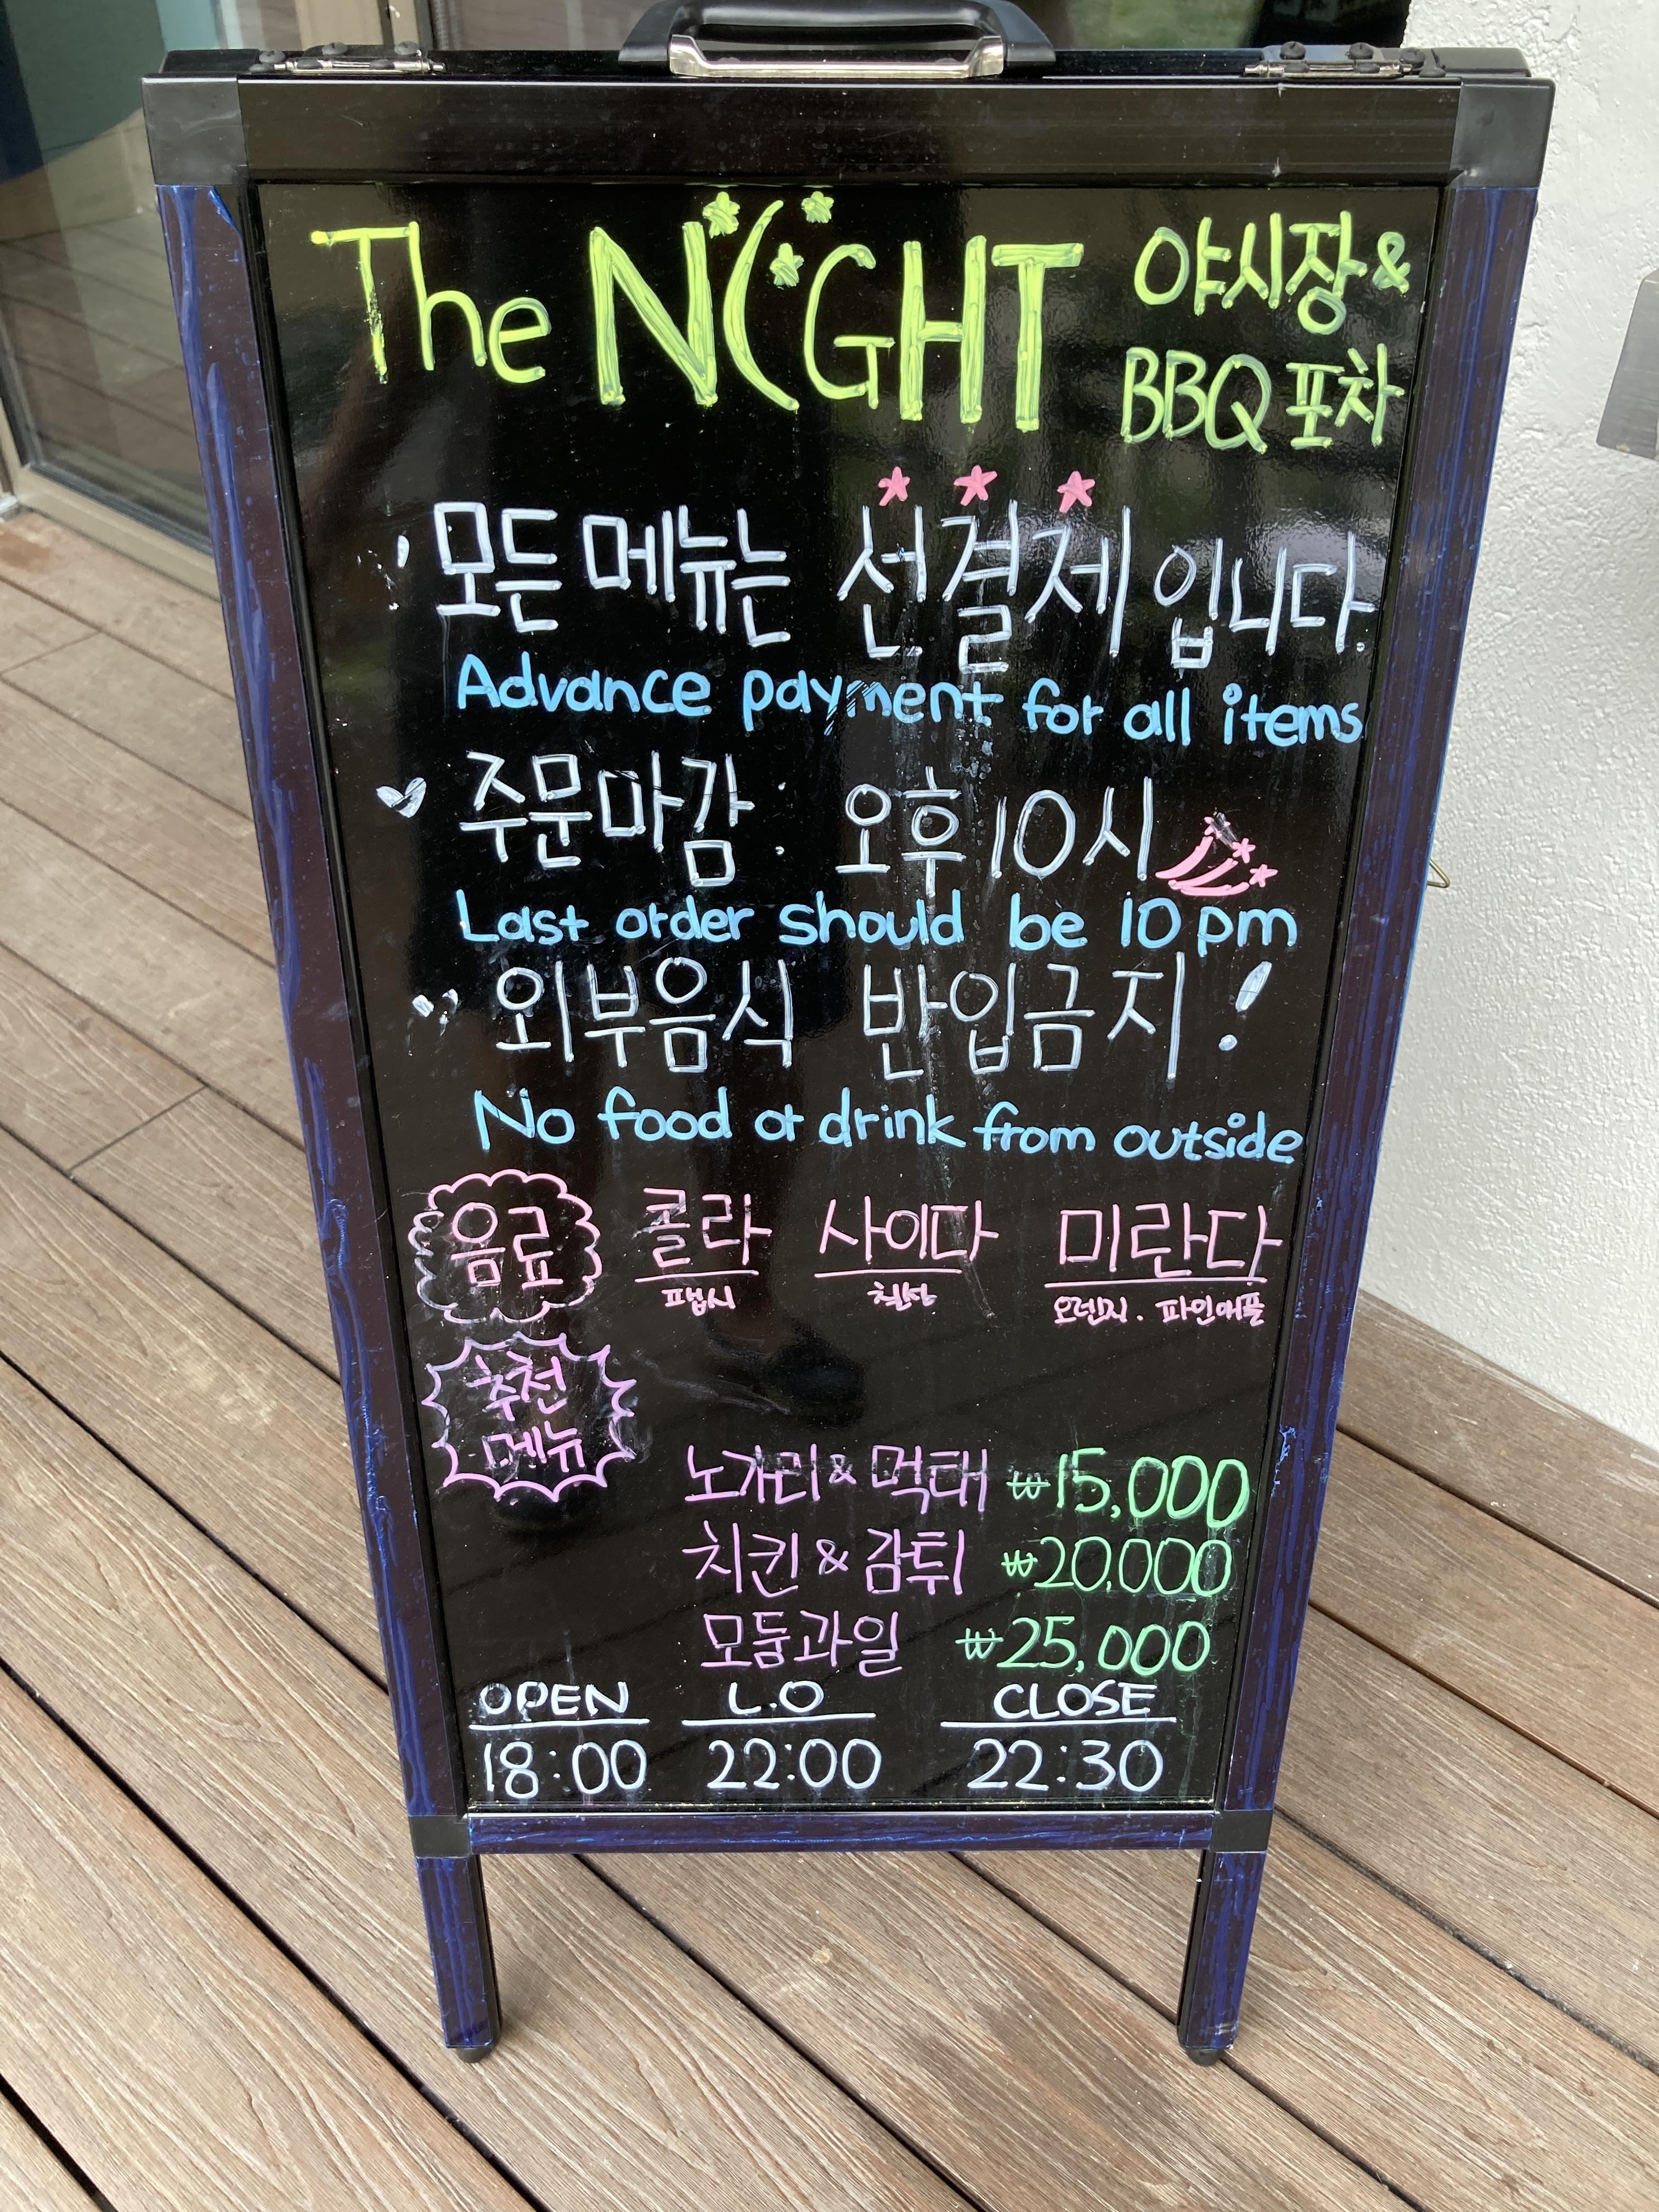 The NIGHT 야시장 &
BBQ 포차
모든 메뉴는 선결제 입니다.
Advance payment for all items
주문마감 : 오후 10시
Last order should be 10 pm
외부음식 반입금지!
No food or drink from outside
음료 콜라 사이다 미란다
펩시 칠성 오렌지 . 파인애플
추천
메뉴
노가리 & 먹태 ₩15,000
치킨 & 감튀 ₩20,000
모듬과일 ₩25,000
OPEN L.O CLOSE
18:00 22:00 22:30